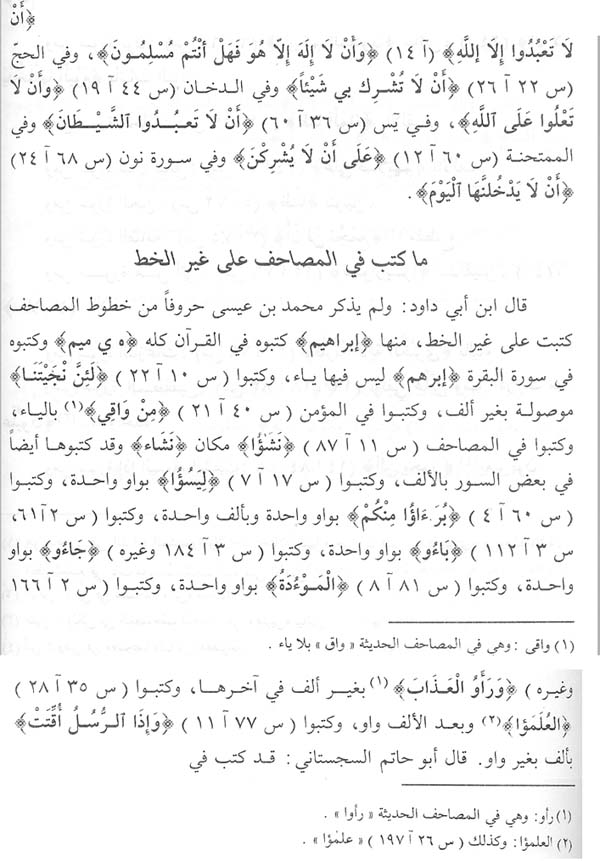 ﴿أَنْ
لَا تَعْبُدُوا إِلَّا اللهِ﴾ (آ ١٤) ﴿وَأَنْ لَا إِلَهَ إِلَّا هُوَ فَهَلْ أَنْتُمْ مُسْلِمُونَ﴾، وفي الحجّ
(س ٢٢ آ ٢٦) ﴿أَنْ لَا تُشْرِك بي شَيْئاً﴾ وفي الدخان (س ٤٤ آ ١٩) ﴿وأَنْ لَا
تَعْلُوا عَلَى اللَّهِ﴾، وفي يٓس (س ٣٦ آ ٦٠) ﴿أَنْ لَا تَعبُدُوا الشَّيْطَانَ﴾ وفي
الممتحنة (س ٦٠ آ ١٢) ﴿عَلَى أَنْ لَا يُشْرِكْنَ﴾ وفي سورة نون (س ٦٨ آ ٢٤)
﴿أَنْ لَا يَدْخُلَنَّهَا الْيَوْمَ﴾.
ما كتب في المصاحف على غير الخط
قال ابن أبي داود: ولم يذكر محمد بن عيسى حروفاً من خطوط المصاحف
كتبت على غير الخط، منها ﴿إبراهيم﴾ كتبوه في القرآن كله ﴿ه ي ميم﴾ وكتبوه
في سورة البقرة ﴿إبرهم﴾ ليس فيها ياء، وكتبوا (س ١٠ آ ٢٢) ﴿لَئِنْ نَجَيْتَنَا﴾
موصولة بغير ألف، وكتبوا في المؤمن (س ٤٠ آ ٢١) ﴿مِنْ وَاقِي﴾(١) بالياء،
وكتبوا في المصاحف (س ١١ آ ٨٧) ﴿نَشٰؤُا﴾ مكان ﴿نَشَاء﴾ وقد كتبوها أيضاً
في بعض السور بالألف، وكتبوا (س ١٧ آ ٧) ﴿لِيَسُؤُا﴾ بواو واحدة، وكتبوا
(س ٦٠ آ ٤) ﴿بُرَءَاؤُا مِنْكُمْ﴾ بواو واحدة وبألف واحدة، وكتبوا (س ٢آ٦١،
س ٣ آ ١١٢) ﴿بَاءُو﴾ بواو واحدة، وكتبوا (س ٣ آ ١٨٤ وغيره) ﴿جَاءُو﴾ بواو
واحدة، وكتبوا (س ٨١ آ ٨) ﴿الْمَوْءُدَةُ﴾ بواو واحدة، وكتبوا (س ٢ آ ١٦٦
(١) واقى: وهي في المصاحف الحديثة « واق » بلا ياء .
وغيره) ﴿وَرَأَوُ الْعَذَابَ﴾(١) بغير ألف في آخرها، وكتبوا (س ٣٥ آ ٢٨)
﴿العُلَمٰؤا﴾(٢) وبعد الألف واو، وكتبوا (س ٧٧ آ ١١) ﴿وَإِذَا الرُّسُلُ أُقِّتَتْ﴾
بألف بغير واو. قال أبو حاتم السجستاني: قد كتب في
(١) رأو: وهي في المصاحف الحديثة « رأوا » .
(٢) العلمؤا: وكذلك (س ٢٦ آ ١٩٧) « علمٰؤا » .